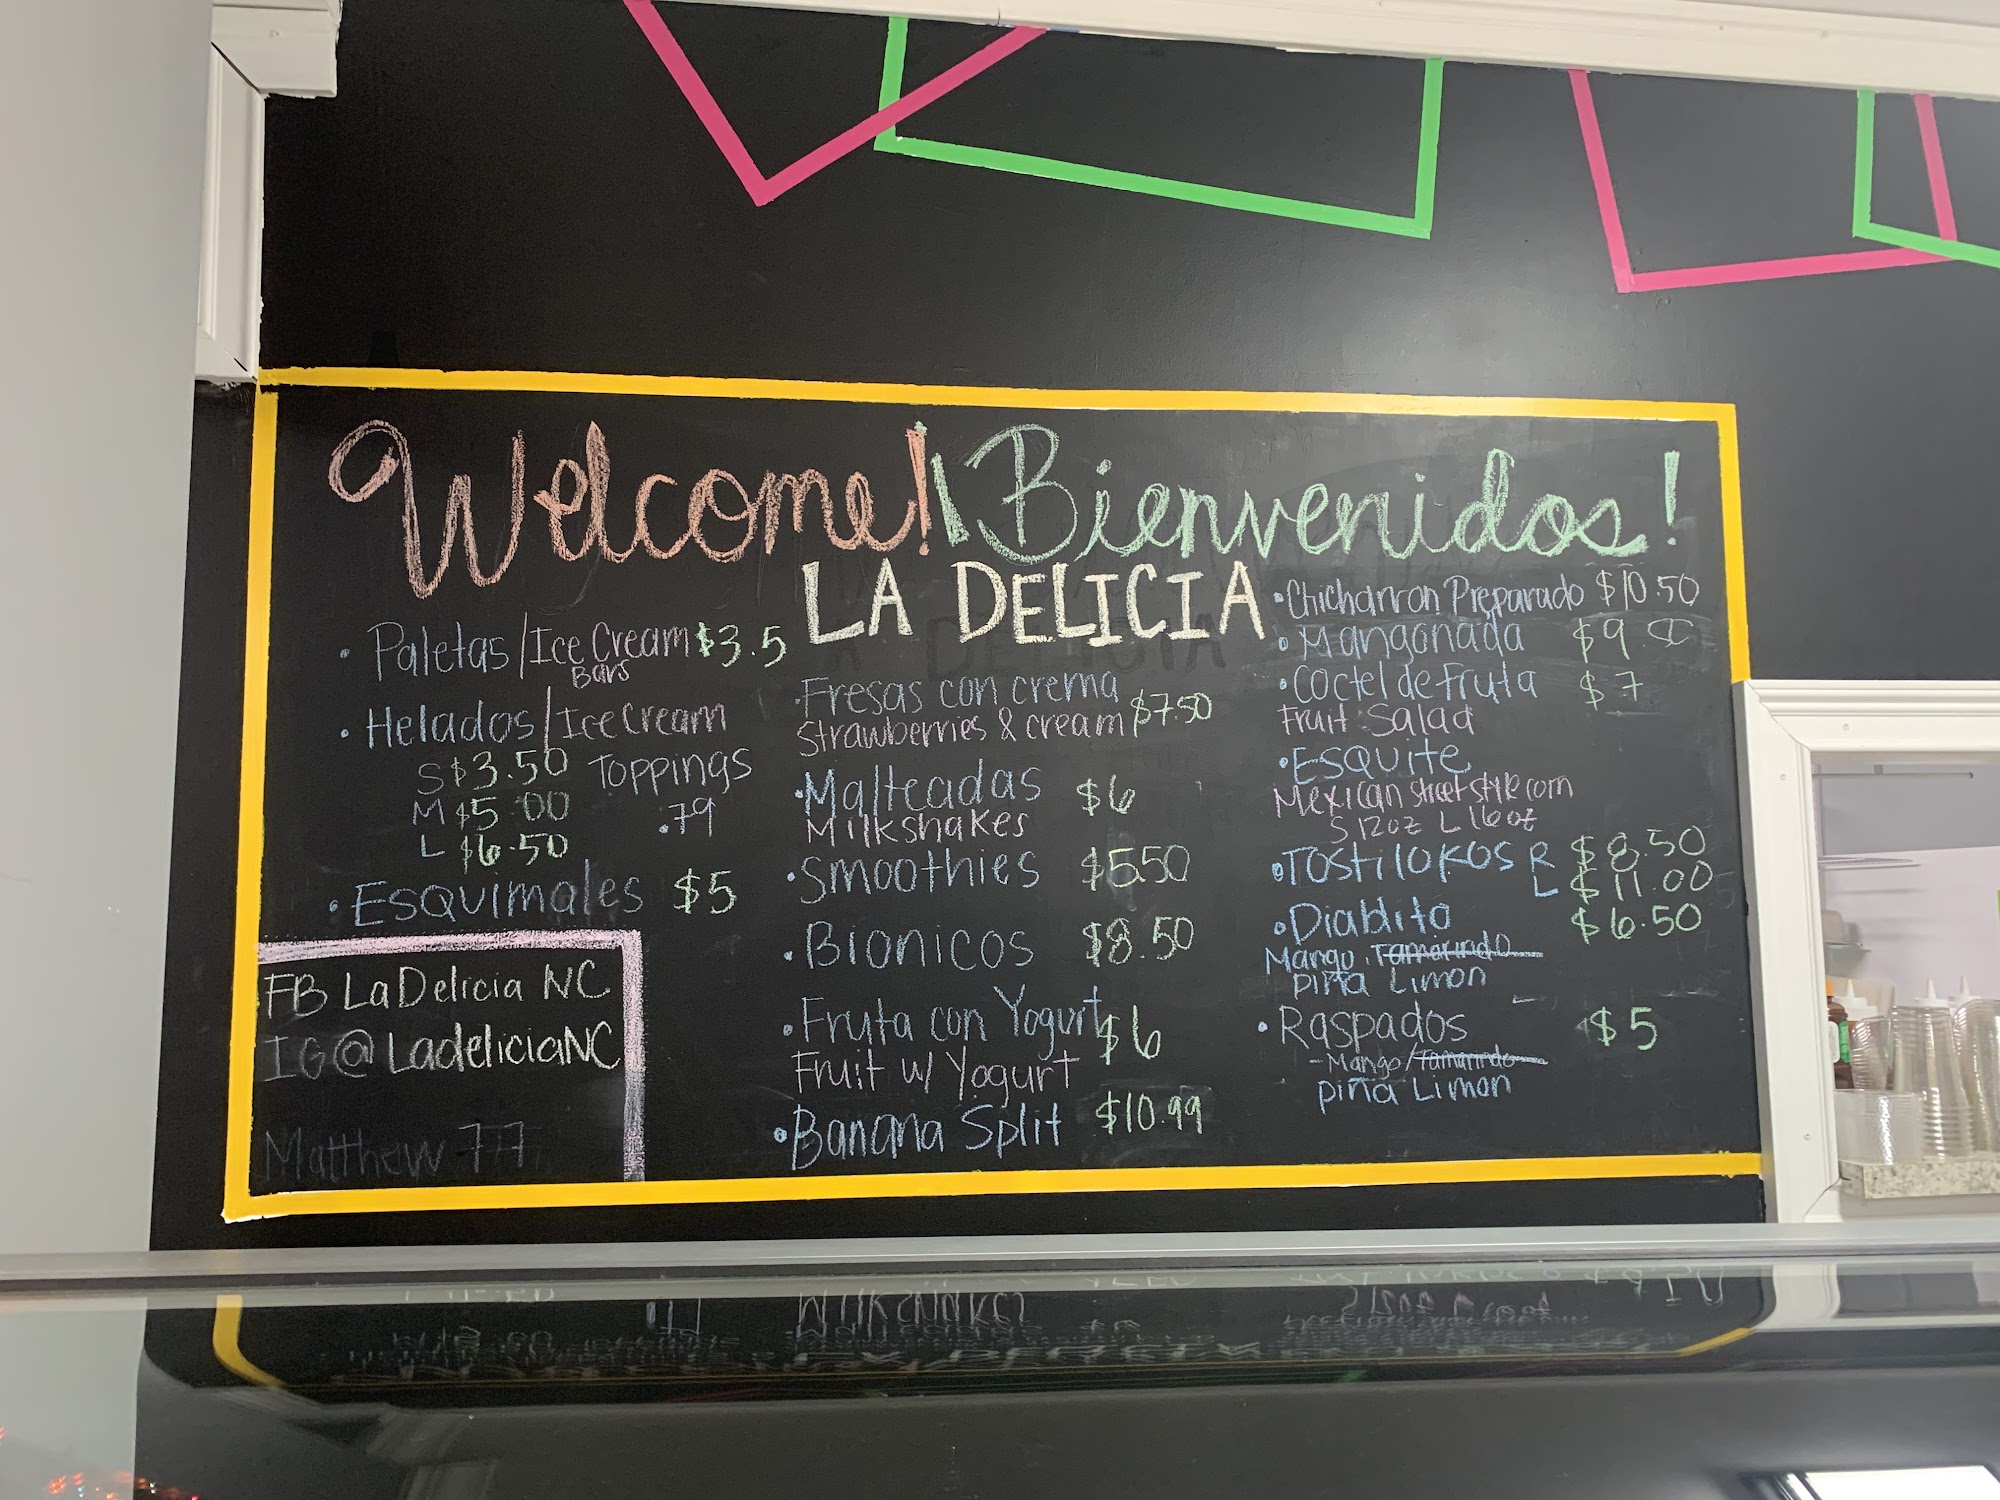 Welcome! ¡Bienvenidos!
LA DELICIA
• Paletas/Ice Cream $3.5
Bars
• Helados/Ice Cream
S $3.50 Toppings
M $5.00 .79
L $6.50
• Esquimales $5
FB La Delicia NC
IG @LadeliciaNC
Matthew 7:7
• Fresas con crema
Strawberries & cream $7.50
• Malteadas $6
Milkshakes
• Smoothies $5.50
• Bionicos $8.50
• Fruta con Yogurt $6
Fruit w/ Yogurt
• Banana Split $10.99
• Chicharron Preparado $10.50
• Mangonada $9.
• Coctel de fruta $7
Fruit Salad
• Esquite
Mexican street style corn
S 12oz L 16oz
• Tostilokos R $8.50
L $11.00
• Diablito $6.50
Mango, Tamarindo
piña Limon
• Raspados $5
- Mango/Tamarindo
piña Limon